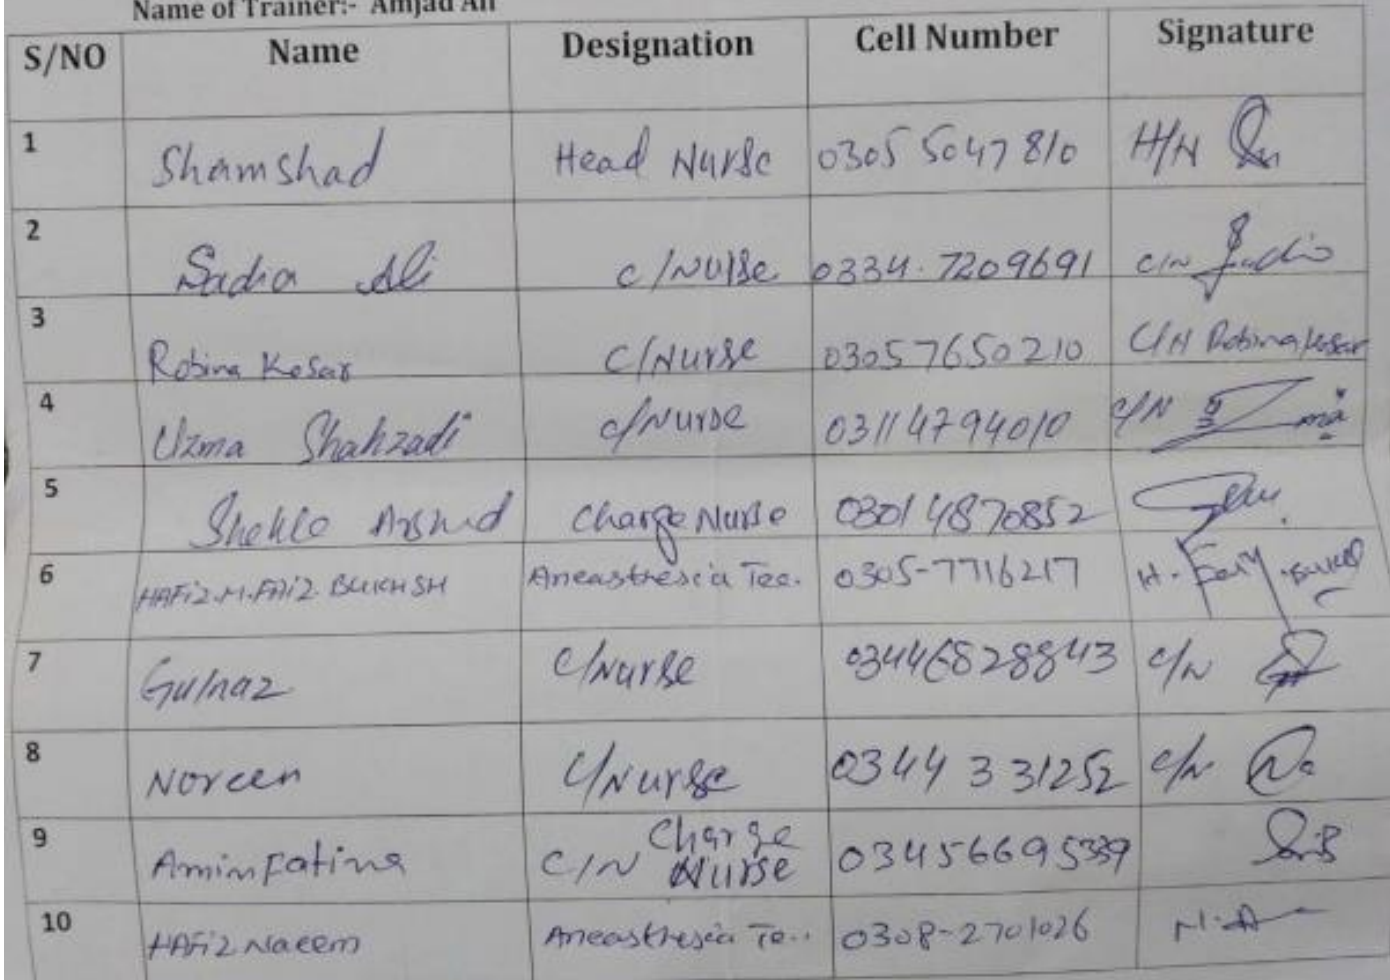 Name of Trainer:- Amjad Ali
S/NO Name Designation Cell Number Signature
1 Shamshad Head Nurse 0305 5047810 H/N
2 Sadia Ali C/Nurse 0334.7209691 C/N Sadia
3 Robina Kosar C/Nurse 03057650210 C/N Robina Kosar
4 Uzma Shahzadi C/Nurse 03114794010 C/N
5 Charge Nurse 03014870852
6 HAFIZ.M.FAIZ BUKHSH Aneasthesia Tec. 0305-7716217 H.
7 Gulnaz C/Nurse 03446828843 C/N
8 Noreen C/Nurse 0344 3331252 C/N
9 Amin Fatima C/N Charge Nurse
10 HAFIZ Naeem Aneasthesia Te.. 0308-2701026